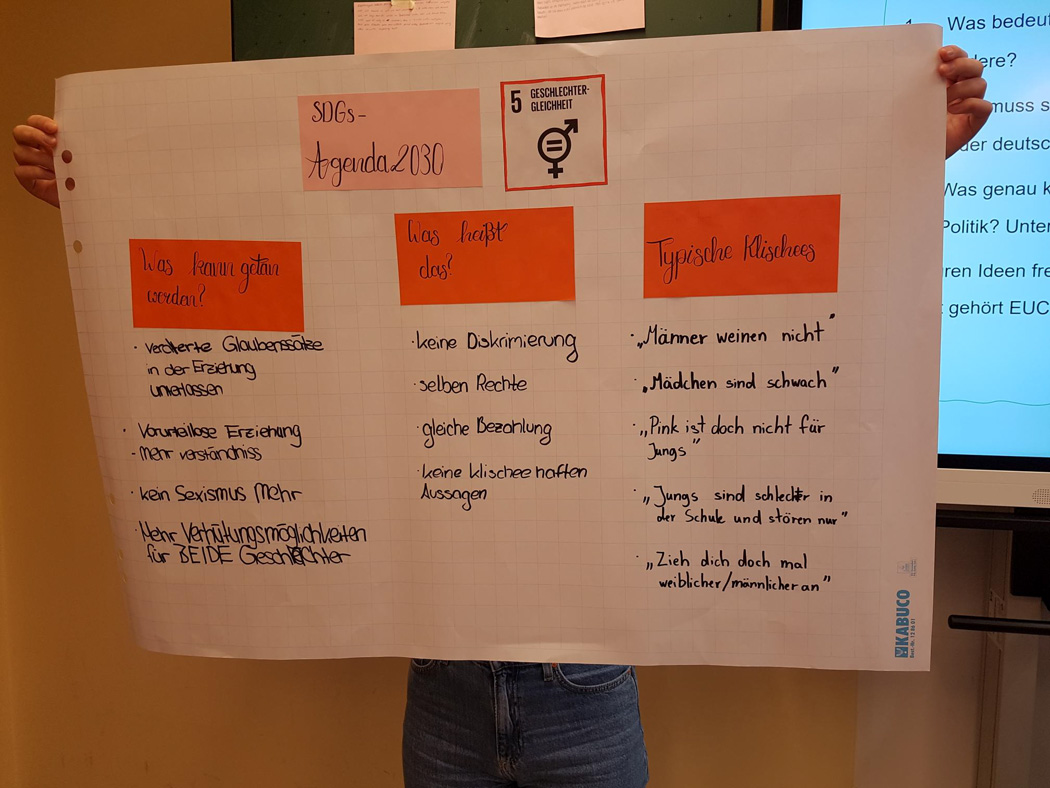 SDGs-
Agenda 2030
5 GESCHLECHTER-
GLEICHHEIT
Was kann getan
werden?
· veraltete Glaubenssätze
in der Erziehung
unterlassen
· Vorurteillose Erziehung
- Mehr verständniss
· kein Sexismus Mehr
· Mehr Verhütungsmöglichkeiten
für BEIDE Geschlechter
Was heißt
das?
· keine Diskrimierung
· selben Rechte
· gleiche Bezahlung
· keine klischee haften
Aussagen
Typische Klischees
· „Männer weinen nicht"
· „Mädchen sind schwach"
· „Pink ist doch nicht für
Jungs"
· „Jungs sind schlechter in
der Schule und stören nur"
· „Zieh dich doch mal
weiblicher/männlicher an"
KABUCO
Was bedeu
dere?
muss s
der deutsc
Was genau k
Politik? Unter
ren Ideen fre
t gehört EUC